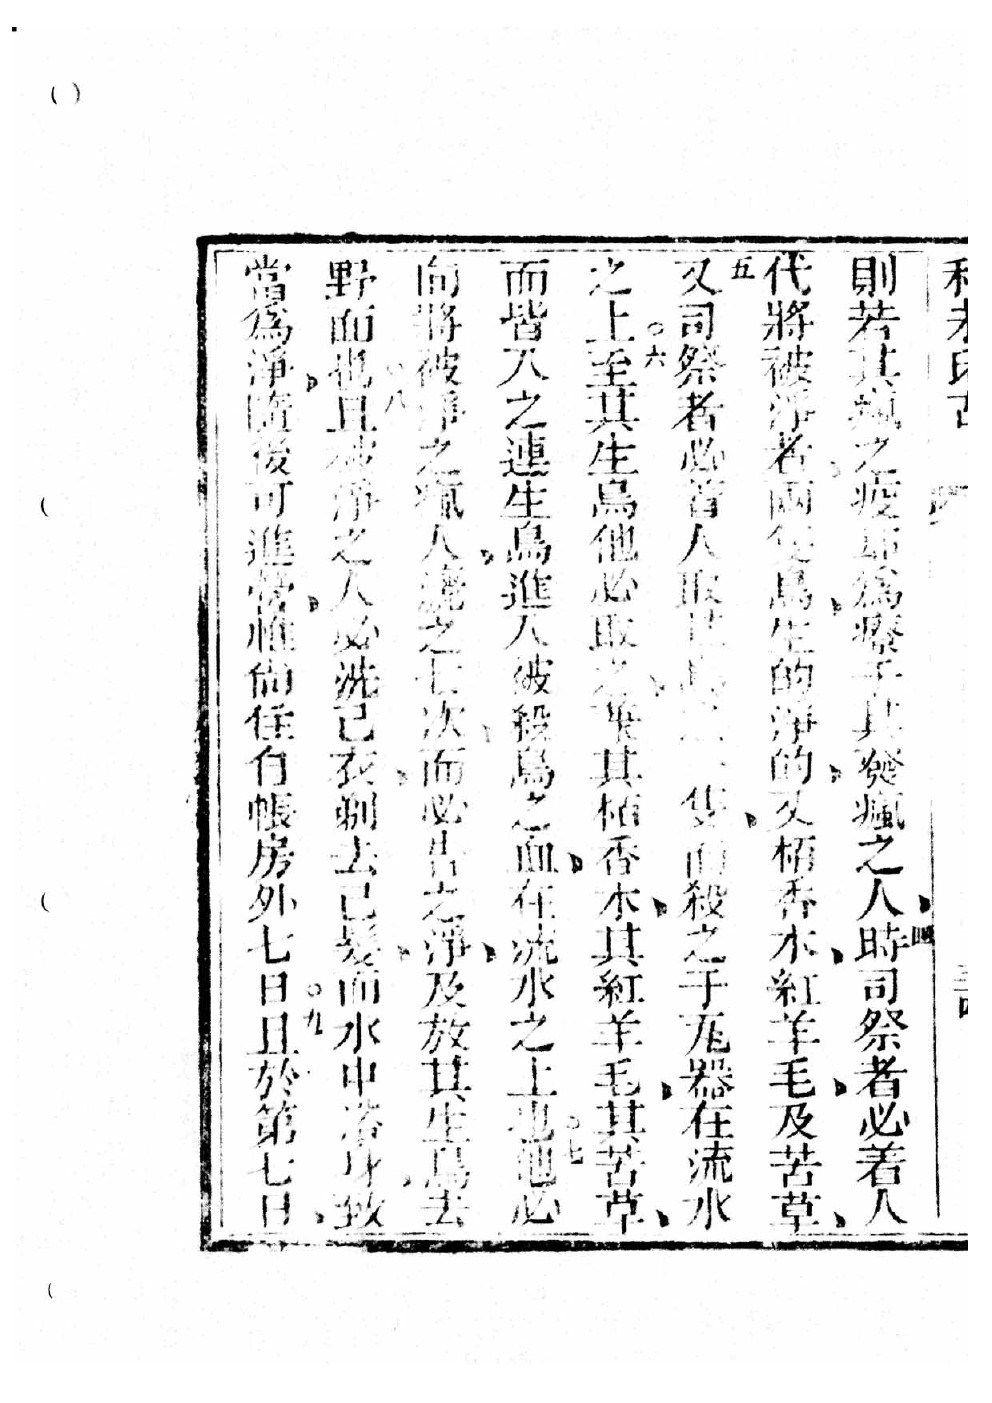 則若其瘋之疫為療于其發瘋之人、四時司祭者必着人
代將被淨者、兩隻鳥、生的淨的、又栢香木、紅羊毛、及苦草、
五又司祭者必着人取其鳥一隻、而殺之于瓦器在流水
之上。六至其生鳥他必取之、其栢香木、其紅羊毛、其苦草、
而皆入之連生鳥進入被殺鳥之血、在流水之上也。七他必
向將被淨之瘋人、洒之七次、而必告之淨、及放其生鳥去
野面也。八且被淨之人必洗己衣、剃去己髮、而水中浴身、致
當為淨、隨後可進營、惟尚住自帳房外七日。九且於第七日、